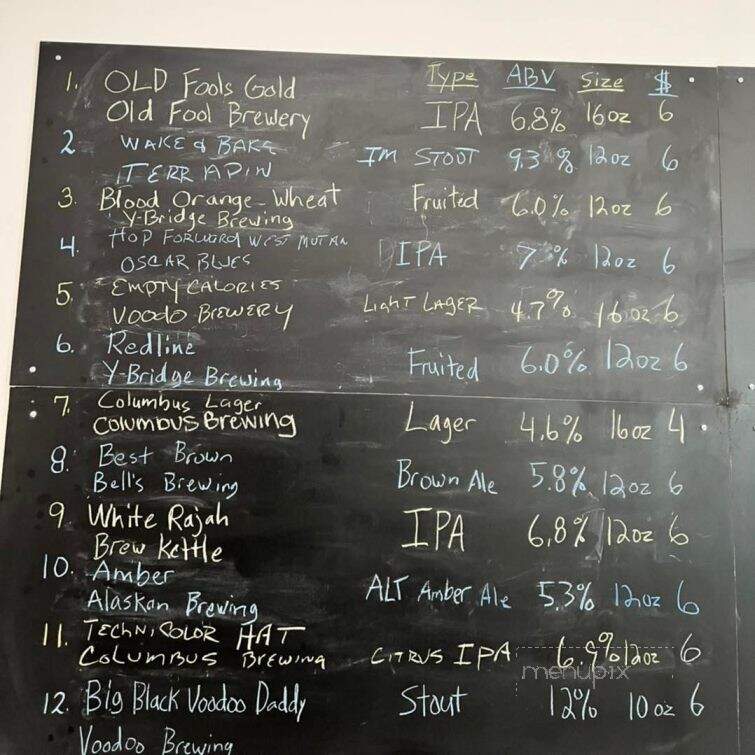 Type ABV Size $
1. OLD Fools Gold IPA 6.8% 16oz 6
Old Fool Brewery
2 WAKE & BAKE IM STOUT 9.3% 12oz 6
TERRAPIN
3. Blood Orange-Wheat Fruited 6.0% 12oz 6
Y-Bridge Brewing
4. HOP FORWARD WEST MUTAN IPA 7 % 12oz 6
OSCAR BLUES
5. EMPTY CALORIES LIGHT LAGER 4.7% 16oz 6
VOODO BREWERY
6. Redline Fruited 6.0% 12oz 6
Y-Bridge Brewing
7. Columbus Lager Lager 4.6% 16oz 4
COLUMBUS Brewing
8. Best Brown Brown Ale 5.8% 12oz 6
Bell's Brewing
9. White Rajah IPA 6.8% 12oz 6
Brew Kettle
10. Amber ALT Amber Ale 5.3% 12oz 6
Alaskan Brewing
11. TECHNICOLOR HAT CITRUS IPA 12oz 6
COLUMBUS BREWING
menupix
12. Big Black Voodoo Daddy Stout 12% 10oz 6
Voodoo Brewing